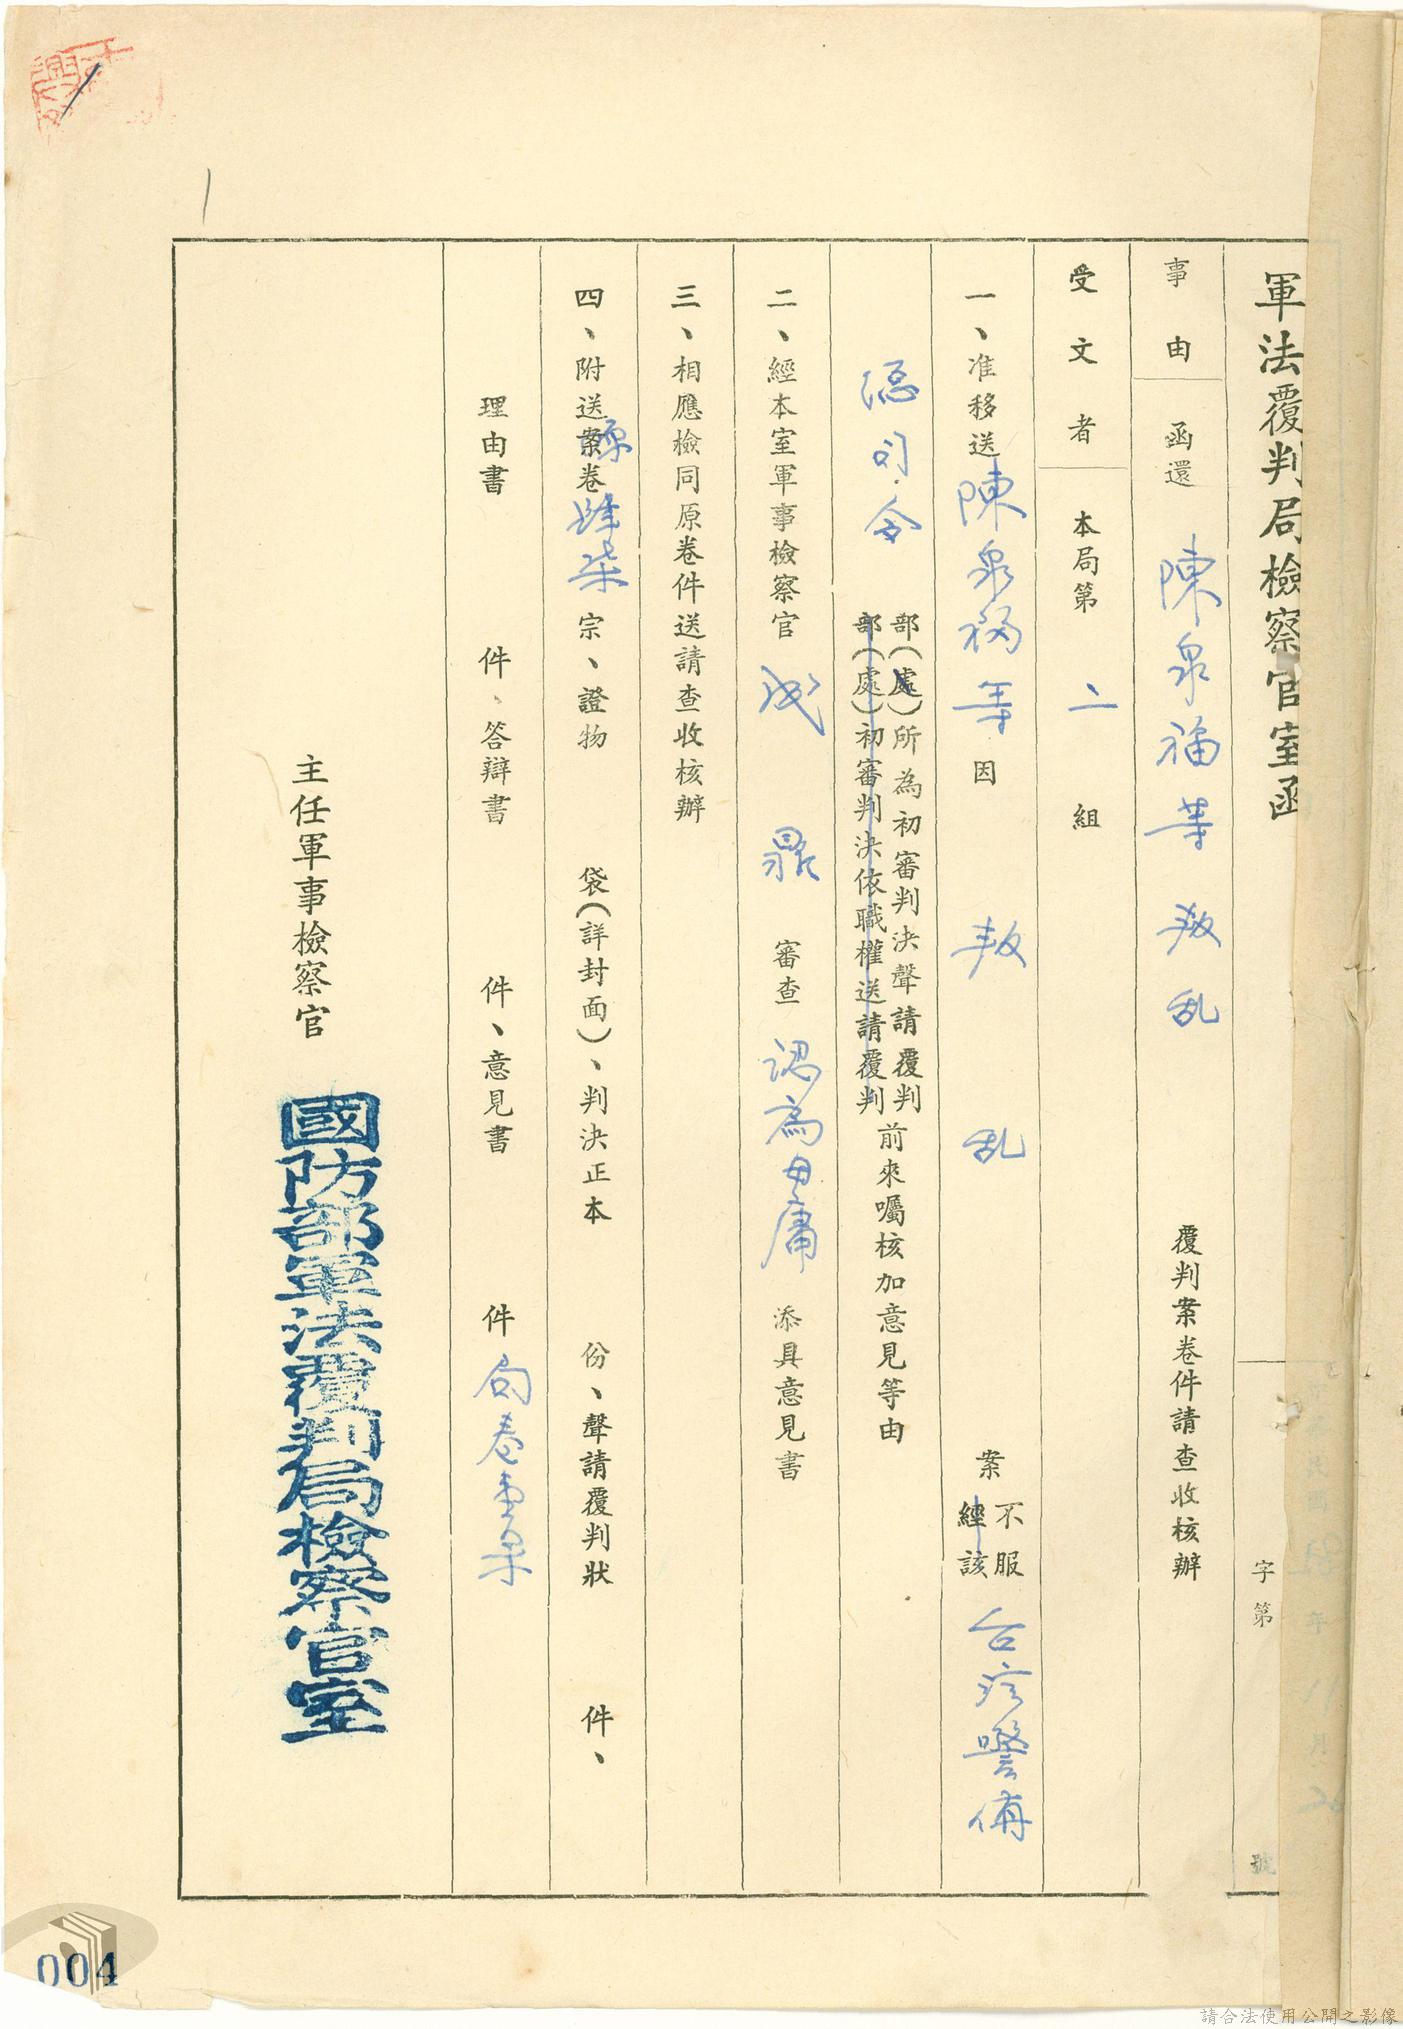 軍法覆判局檢察官室函
字第 號
年 11 月 26
事由 函還 陳泉福等 叛乱 覆判案卷件請查收核辦
受文者 本局第 二 組
一、准移送 陳泉福等 因 叛乱 案 不服 經該 台湾警備
總司令 部(處)所為初審判決聲請覆判 部(處)初審判決依職權送請覆判 前來囑核加意見等由
二、經本室軍事檢察官 成鼎 審查 認為毋庸 添具意見書
三、相應檢同原卷件送請查收核辦
四、附送案卷 原 肆柒 宗、證物 袋(詳封面)、判決正本 份、聲請覆判狀 件、
理由書 件、答辯書 件、意見書 件 局卷壹宗
主任軍事檢察官
國防部軍法覆判局檢察官室
004
請合法使用公開之影像